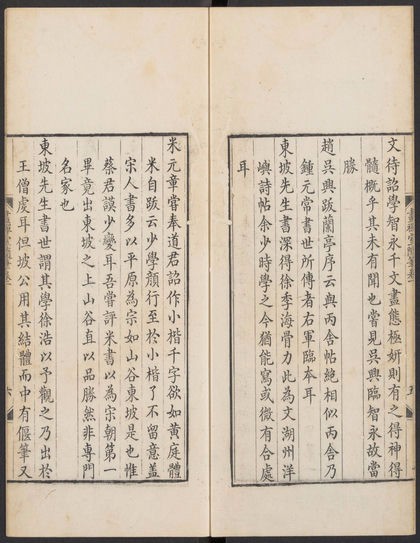 文待詔學智永千文盡態極妍則有之得神得
髓概乎其未有聞也嘗見吳興臨智永故當
勝
趙吳興跋蘭亭序云與丙舍帖絕相似丙舍乃
鍾元常書世所傳者右軍臨本耳
東坡先生書深得徐季海骨力此為文湖州洋
嶼詩帖余少時學之今猶能寫或微有合處
耳
五
米元章嘗奉道君詔作小楷千字欲如黃庭體
米自跋云少學顏行至於小楷了不留意蓋
宋人書多以平原為宗如山谷東坡是也惟
蔡君謨少變耳吾嘗評米書以為宋朝第一
畢竟出東坡之上山谷直以品勝然非專門
名家也
東坡先生書世謂其學徐浩以予觀之乃出於
王僧虔耳但坡公用其結體而中有偃筆又
六